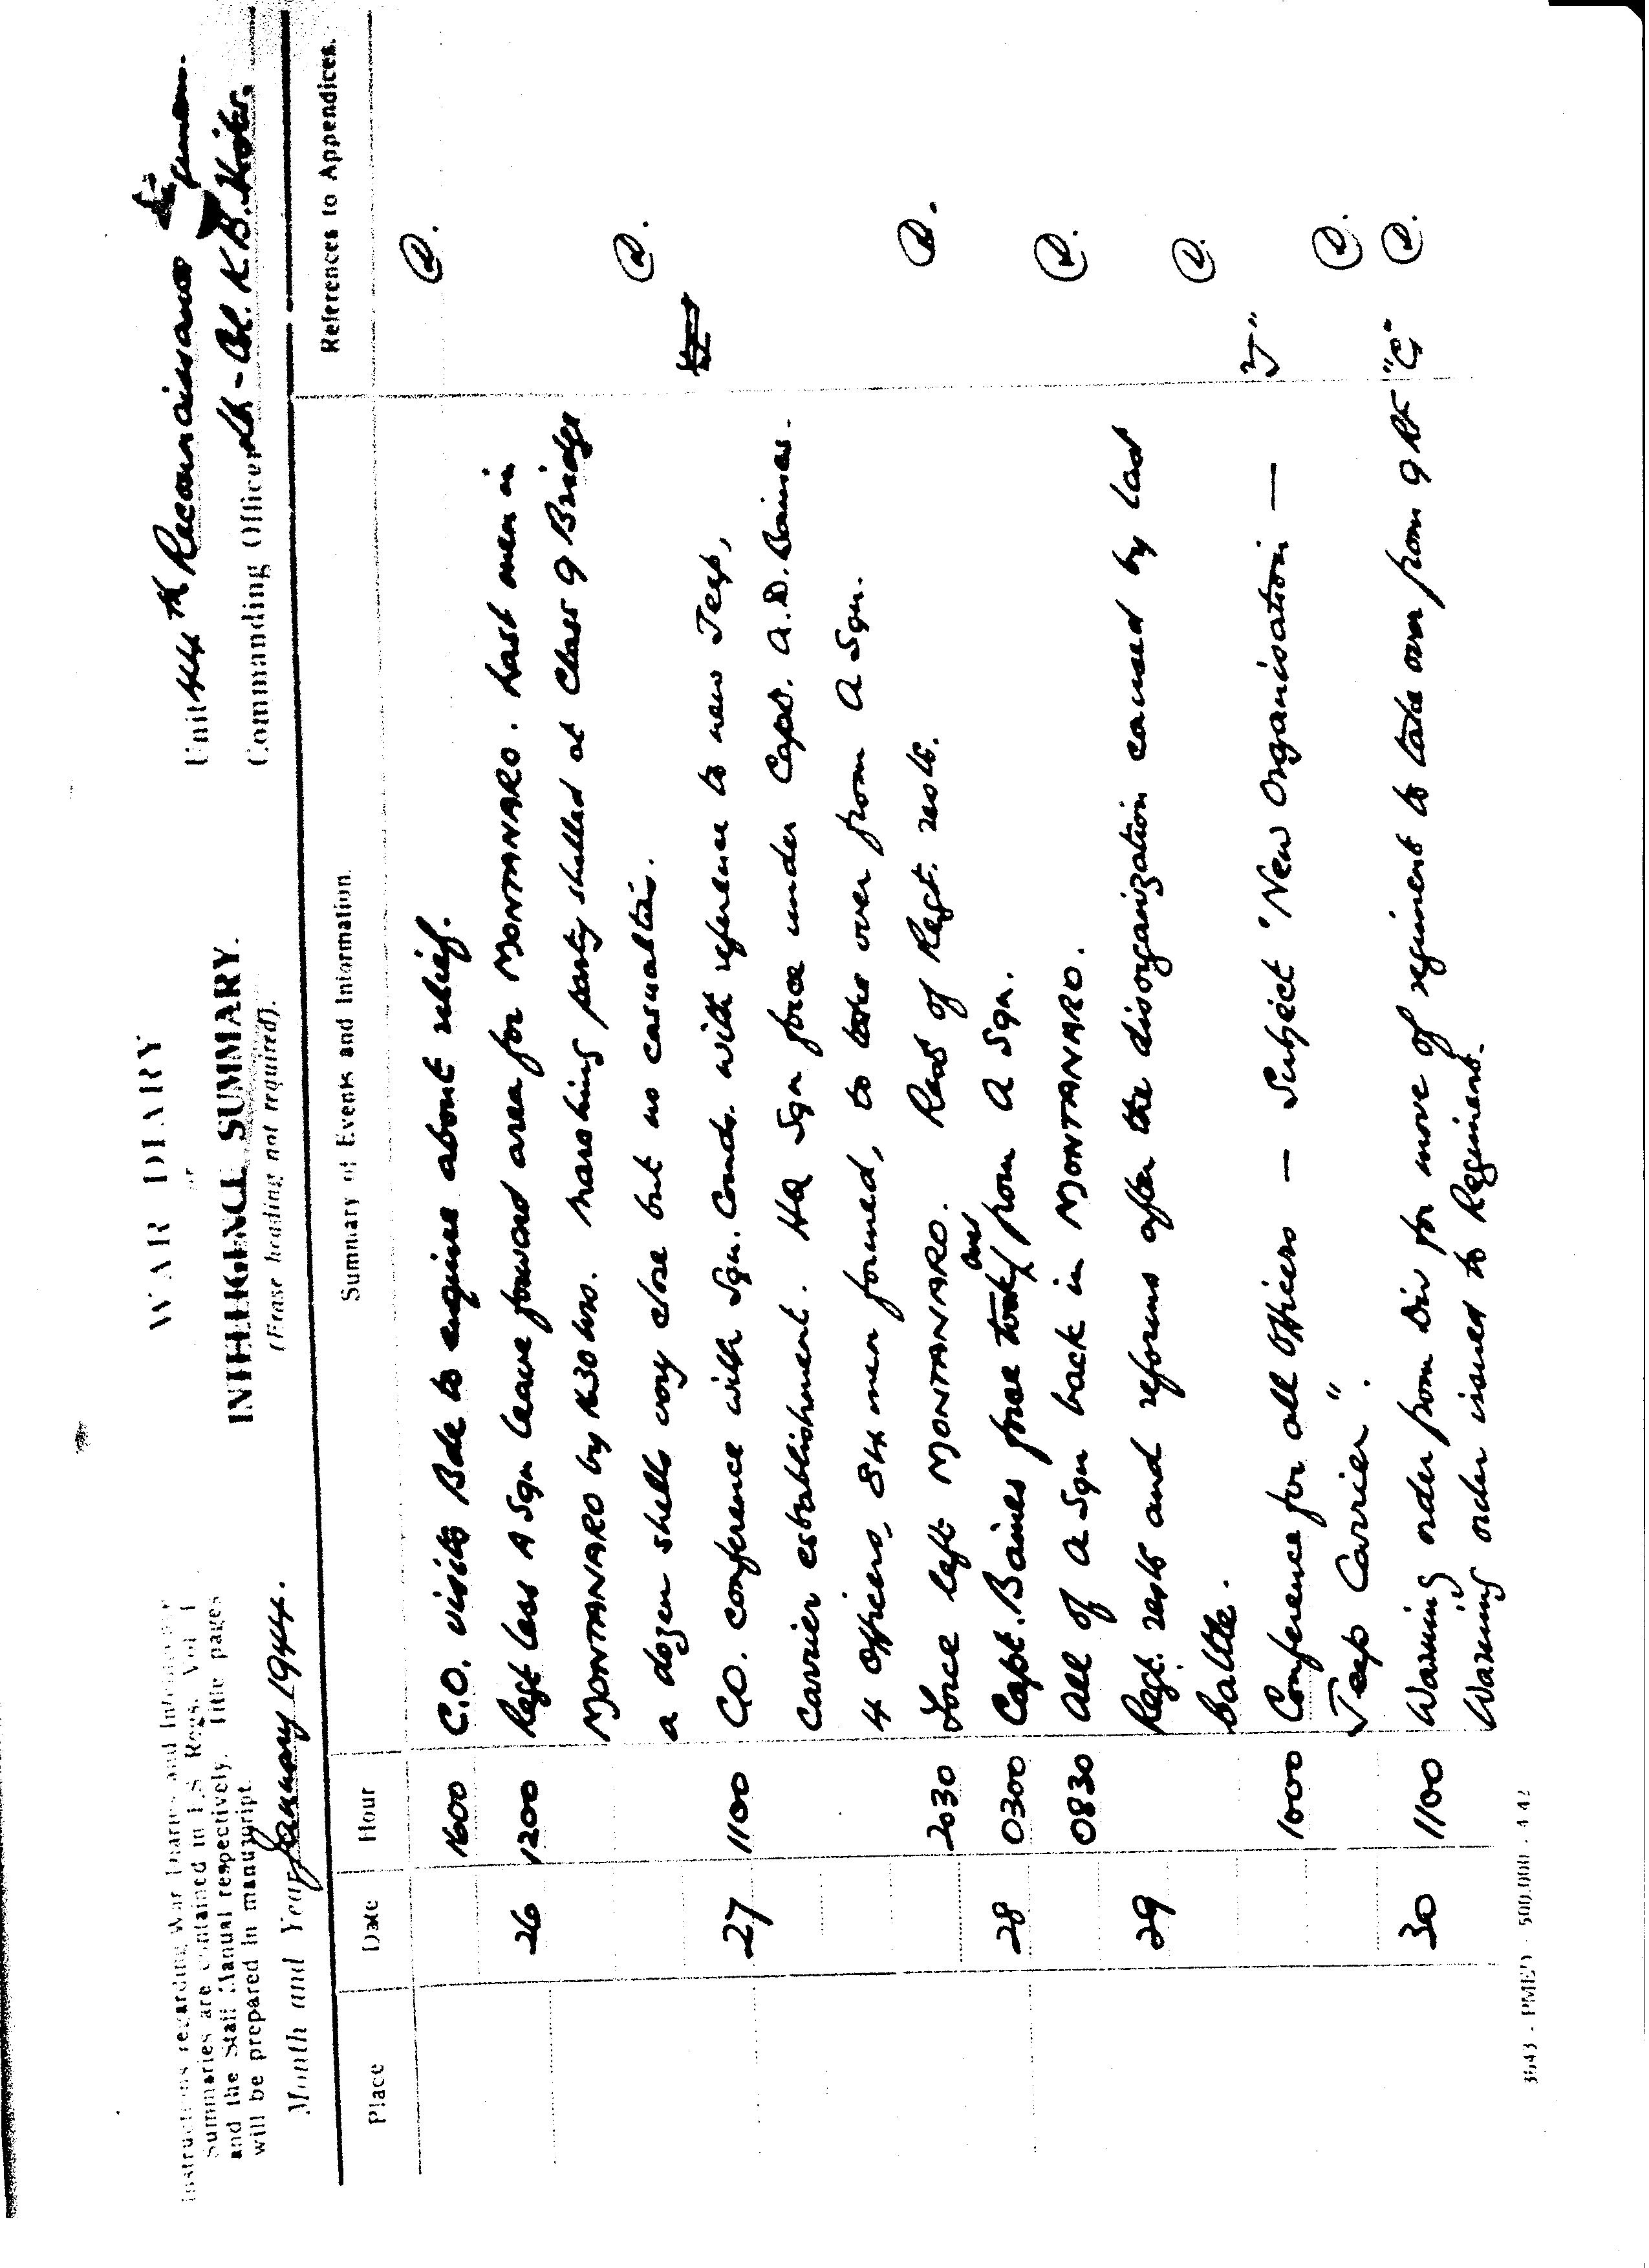 WAR DIARY
or
INTELLIGENCE SUMMARY.
(Erase heading not required).
Instructions regarding War Diaries and Intelligence
Summaries are contained in F.S. Regs. Vol. I
and the Staff Manual respectively. Title pages
will be prepared in manuscript.
Month and Year January 1944.
Unit 44th Reconnaissance
Commanding Officer Lt-Col. K.B.
Place Date Hour Summary of Events and Information References to Appendices.
1600 C.O. visits Bde to enquire about relief.
26 1200 Regt less A Sqn leave forward area for MONTANARO. Last men in
MONTANARO by 1630 hrs. Marching party shelled at Class 9 Bridge
a dozen shells very close but no casualties.
27 1100 C.O. conference with Sqn. Comds. with reference to new Jeep,
Carrier establishment. HQ Sqn force under Capt. A.D. Baines.
4 Officers, 84 men formed, to take over from A Sqn.
2030 Force left MONTANARO. Rest of Regt. rests.
28 0300 Capt. Baines force took over from A Sqn.
0830 All of A Sqn back in MONTANARO.
29 Regt. rests and reforms after the disorganization caused by last
battle.
1000 Conference for all Officers — Subject "New Organisation — "J"
Jeep Carrier".
30 1100 Warning order from Div for move of regiment to take over from 9 RF "G"
Warning order issued to Regiment.
3643 - PMED - 500,000 - 4.42